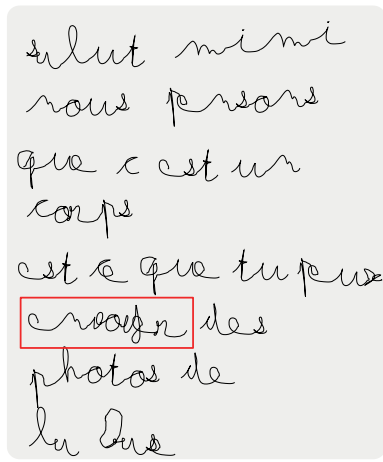 salut mimi
nous pnsons
que c est un
corps
est ce que tu peux
des
photos de
la